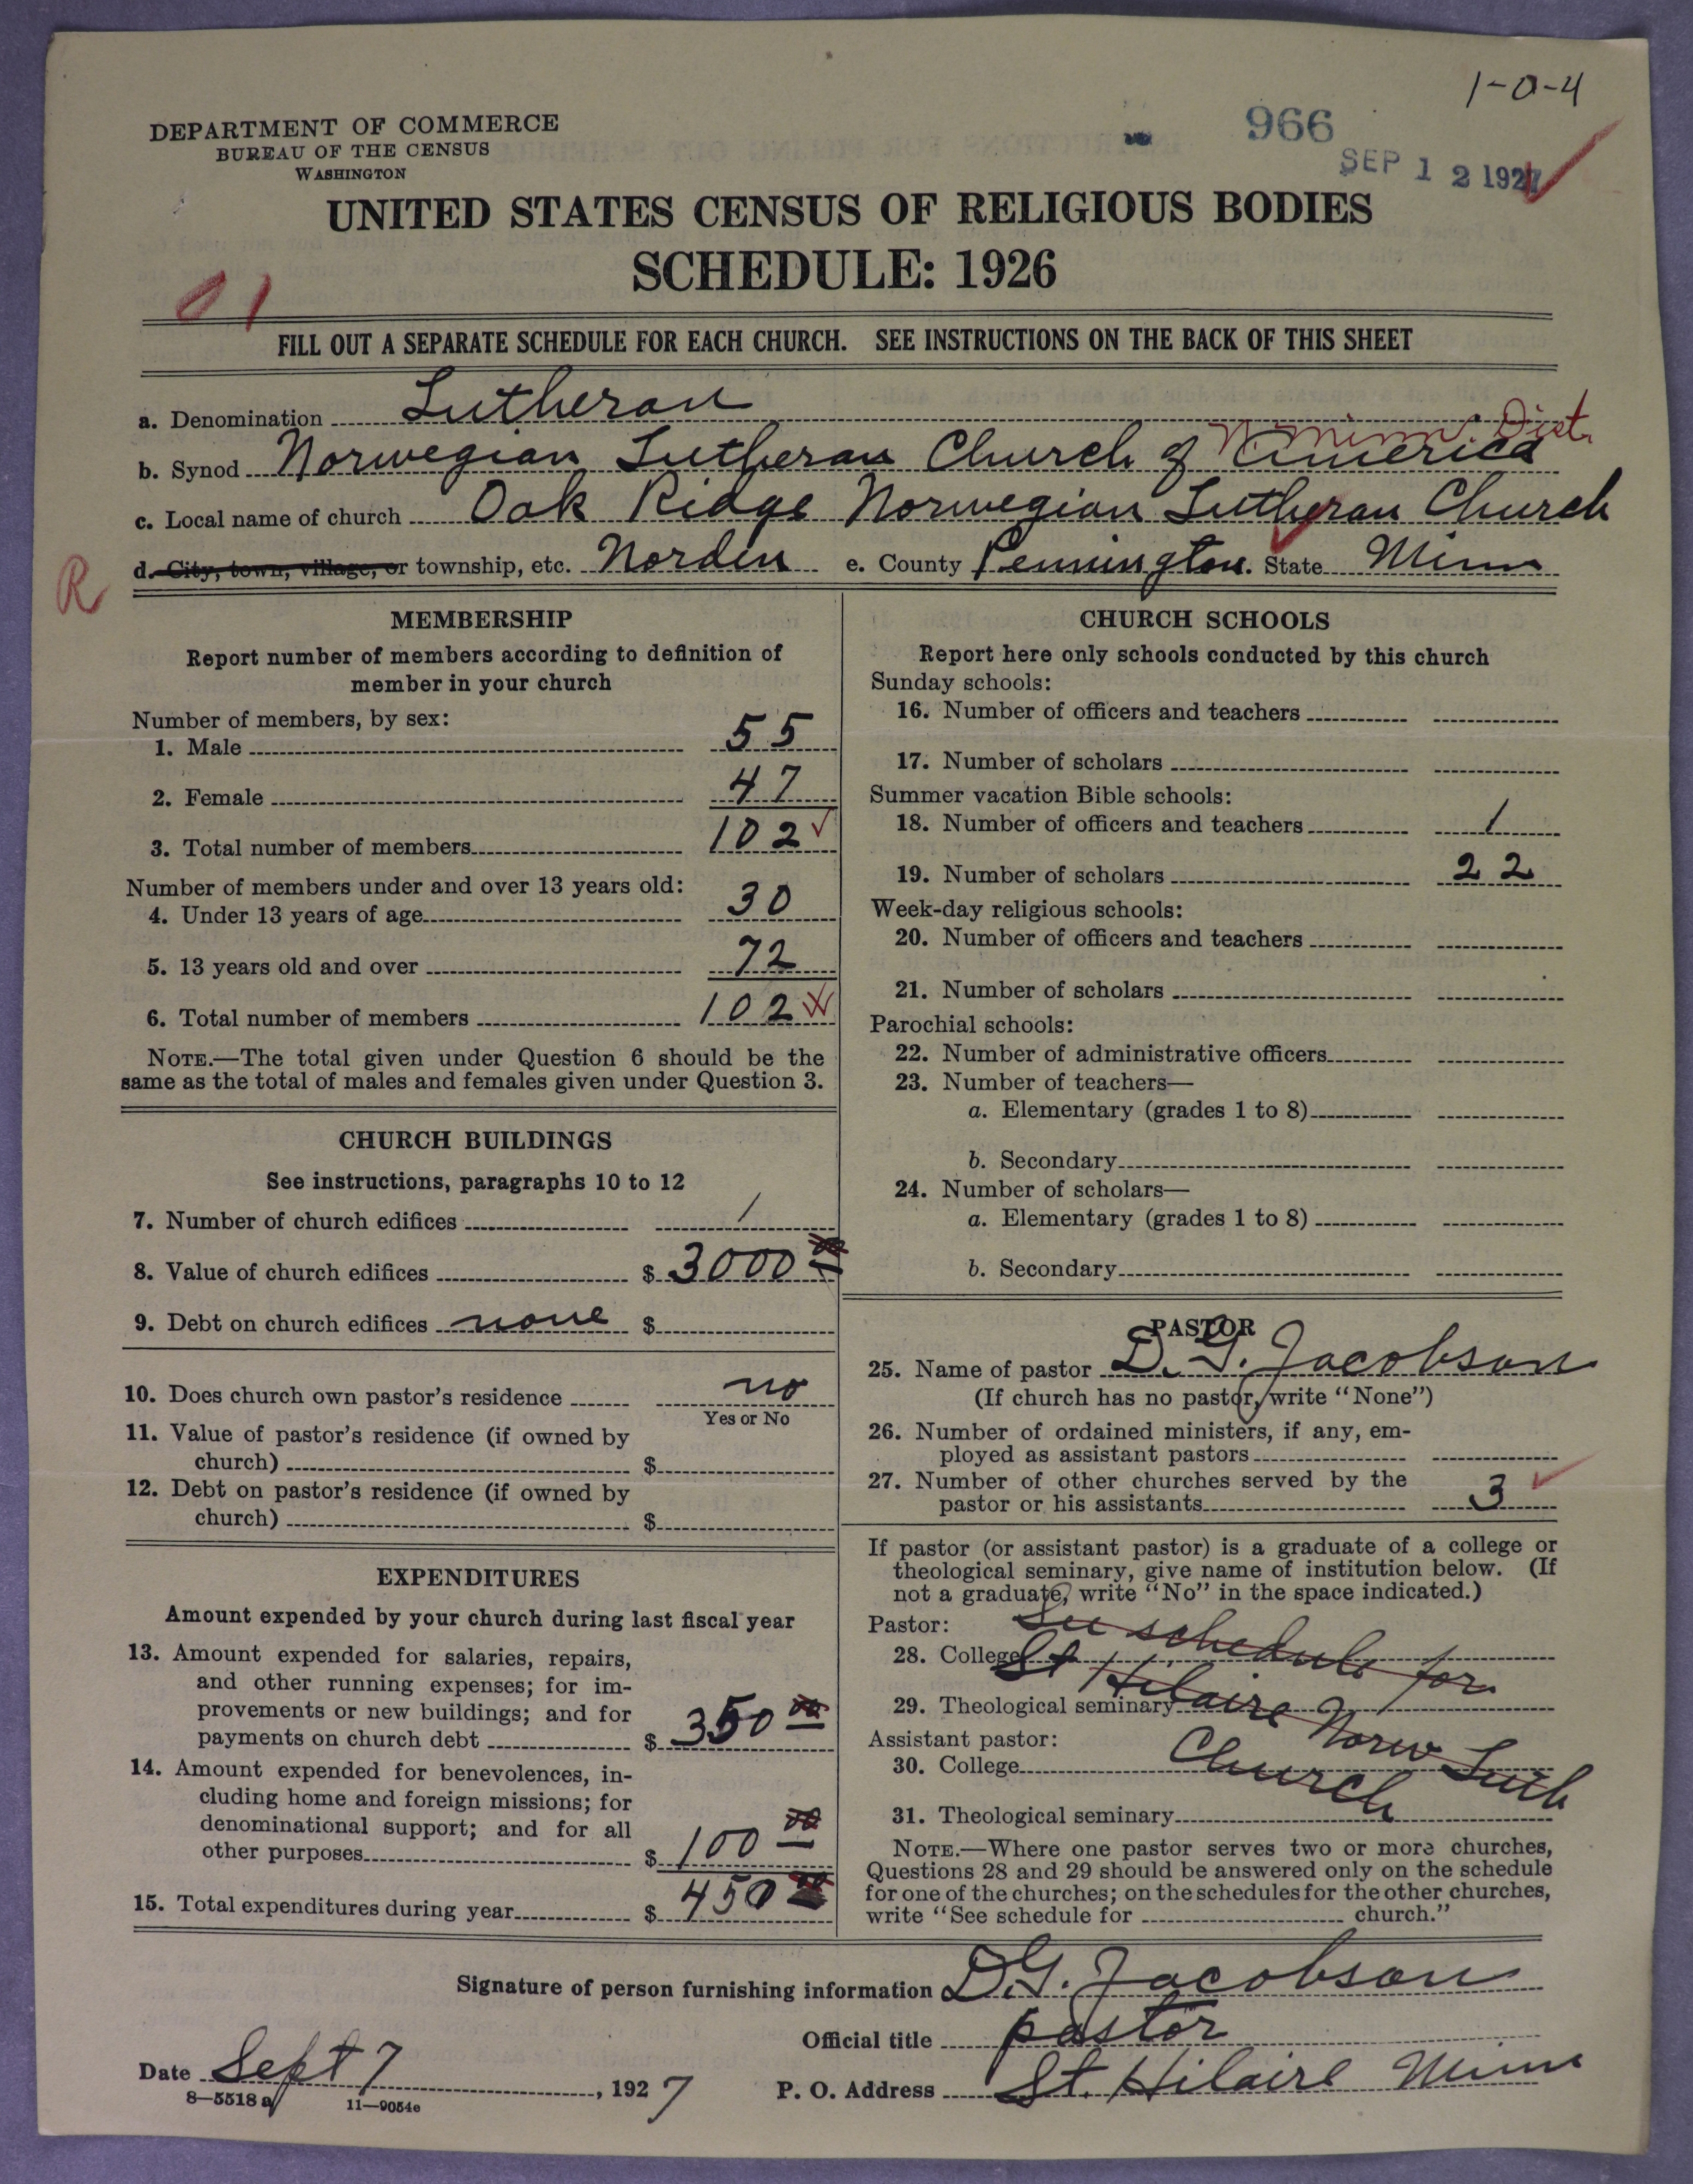 1-0-4
DEPARTMENT OF COMMERCE
BUREAU OF THE CENSUS
WASHINGTON
966
SEP 12 1927
UNITED STATES CENSUS OF RELIGIOUS BODIES
SCHEDULE: 1926
01
FILL OUT A SEPARATE SCHEDULE FOR EACH CHURCH. SEE INSTRUCTIONS ON THE BACK OF THIS SHEET
a. Denomination Lutheran
N. Minn. Dist.
b. Synod Norwegian Lutheran Church of America
c. Local name of church Oak Ridge Norwegian Lutheran Church
R d. City, town, village, or township, etc. Norden e. County Pennington. State Minn
MEMBERSHIP
Report number of members according to definition of
member in your church
Number of members, by sex:
1. Male 55
2. Female 47
3. Total number of members 102
Number of members under and over 13 years old:
4. Under 13 years of age 30
5. 13 years old and over 72
6. Total number of members 102
NOTE.—The total given under Question 6 should be the
same as the total of males and females given under Question 3.
CHURCH BUILDINGS
See instructions, paragraphs 10 to 12
7. Number of church edifices 1
8. Value of church edifices $ 3000 00
9. Debt on church edifices none $
10. Does church own pastor's residence no
Yes or No
11. Value of pastor's residence (if owned by
church) $
12. Debt on pastor's residence (if owned by
church) $
EXPENDITURES
Amount expended by your church during last fiscal year
13. Amount expended for salaries, repairs,
and other running expenses; for im-
provements or new buildings; and for
payments on church debt $ 350 00
14. Amount expended for benevolences, in-
cluding home and foreign missions; for
denominational support; and for all
other purposes $ 100 00
15. Total expenditures during year $ 450 00
CHURCH SCHOOLS
Report here only schools conducted by this church
Sunday schools:
16. Number of officers and teachers
17. Number of scholars
Summer vacation Bible schools:
18. Number of officers and teachers 1
19. Number of scholars 22
Week-day religious schools:
20. Number of officers and teachers
21. Number of scholars
Parochial schools:
22. Number of administrative officers
23. Number of teachers—
a. Elementary (grades 1 to 8)
b. Secondary
24. Number of scholars—
a. Elementary (grades 1 to 8)
b. Secondary
PASTOR
25. Name of pastor D. G. Jacobson
(If church has no pastor, write "None")
26. Number of ordained ministers, if any, em-
ployed as assistant pastors
27. Number of other churches served by the
pastor or his assistants 3
If pastor (or assistant pastor) is a graduate of a college or
theological seminary, give name of institution below. (If
not a graduate, write "No" in the space indicated.)
Pastor: See schedule for
28. College St Hilaire Norw Luth
29. Theological seminary
Assistant pastor: Church
30. College
31. Theological seminary
NOTE.—Where one pastor serves two or more churches,
Questions 28 and 29 should be answered only on the schedule
for one of the churches; on the schedules for the other churches,
write "See schedule for church."
Signature of person furnishing information D. G. Jacobson
Official title pastor
Date Sept 7, 1927 P. O. Address St. Hilaire Minn
8—5518 a 11—9054e